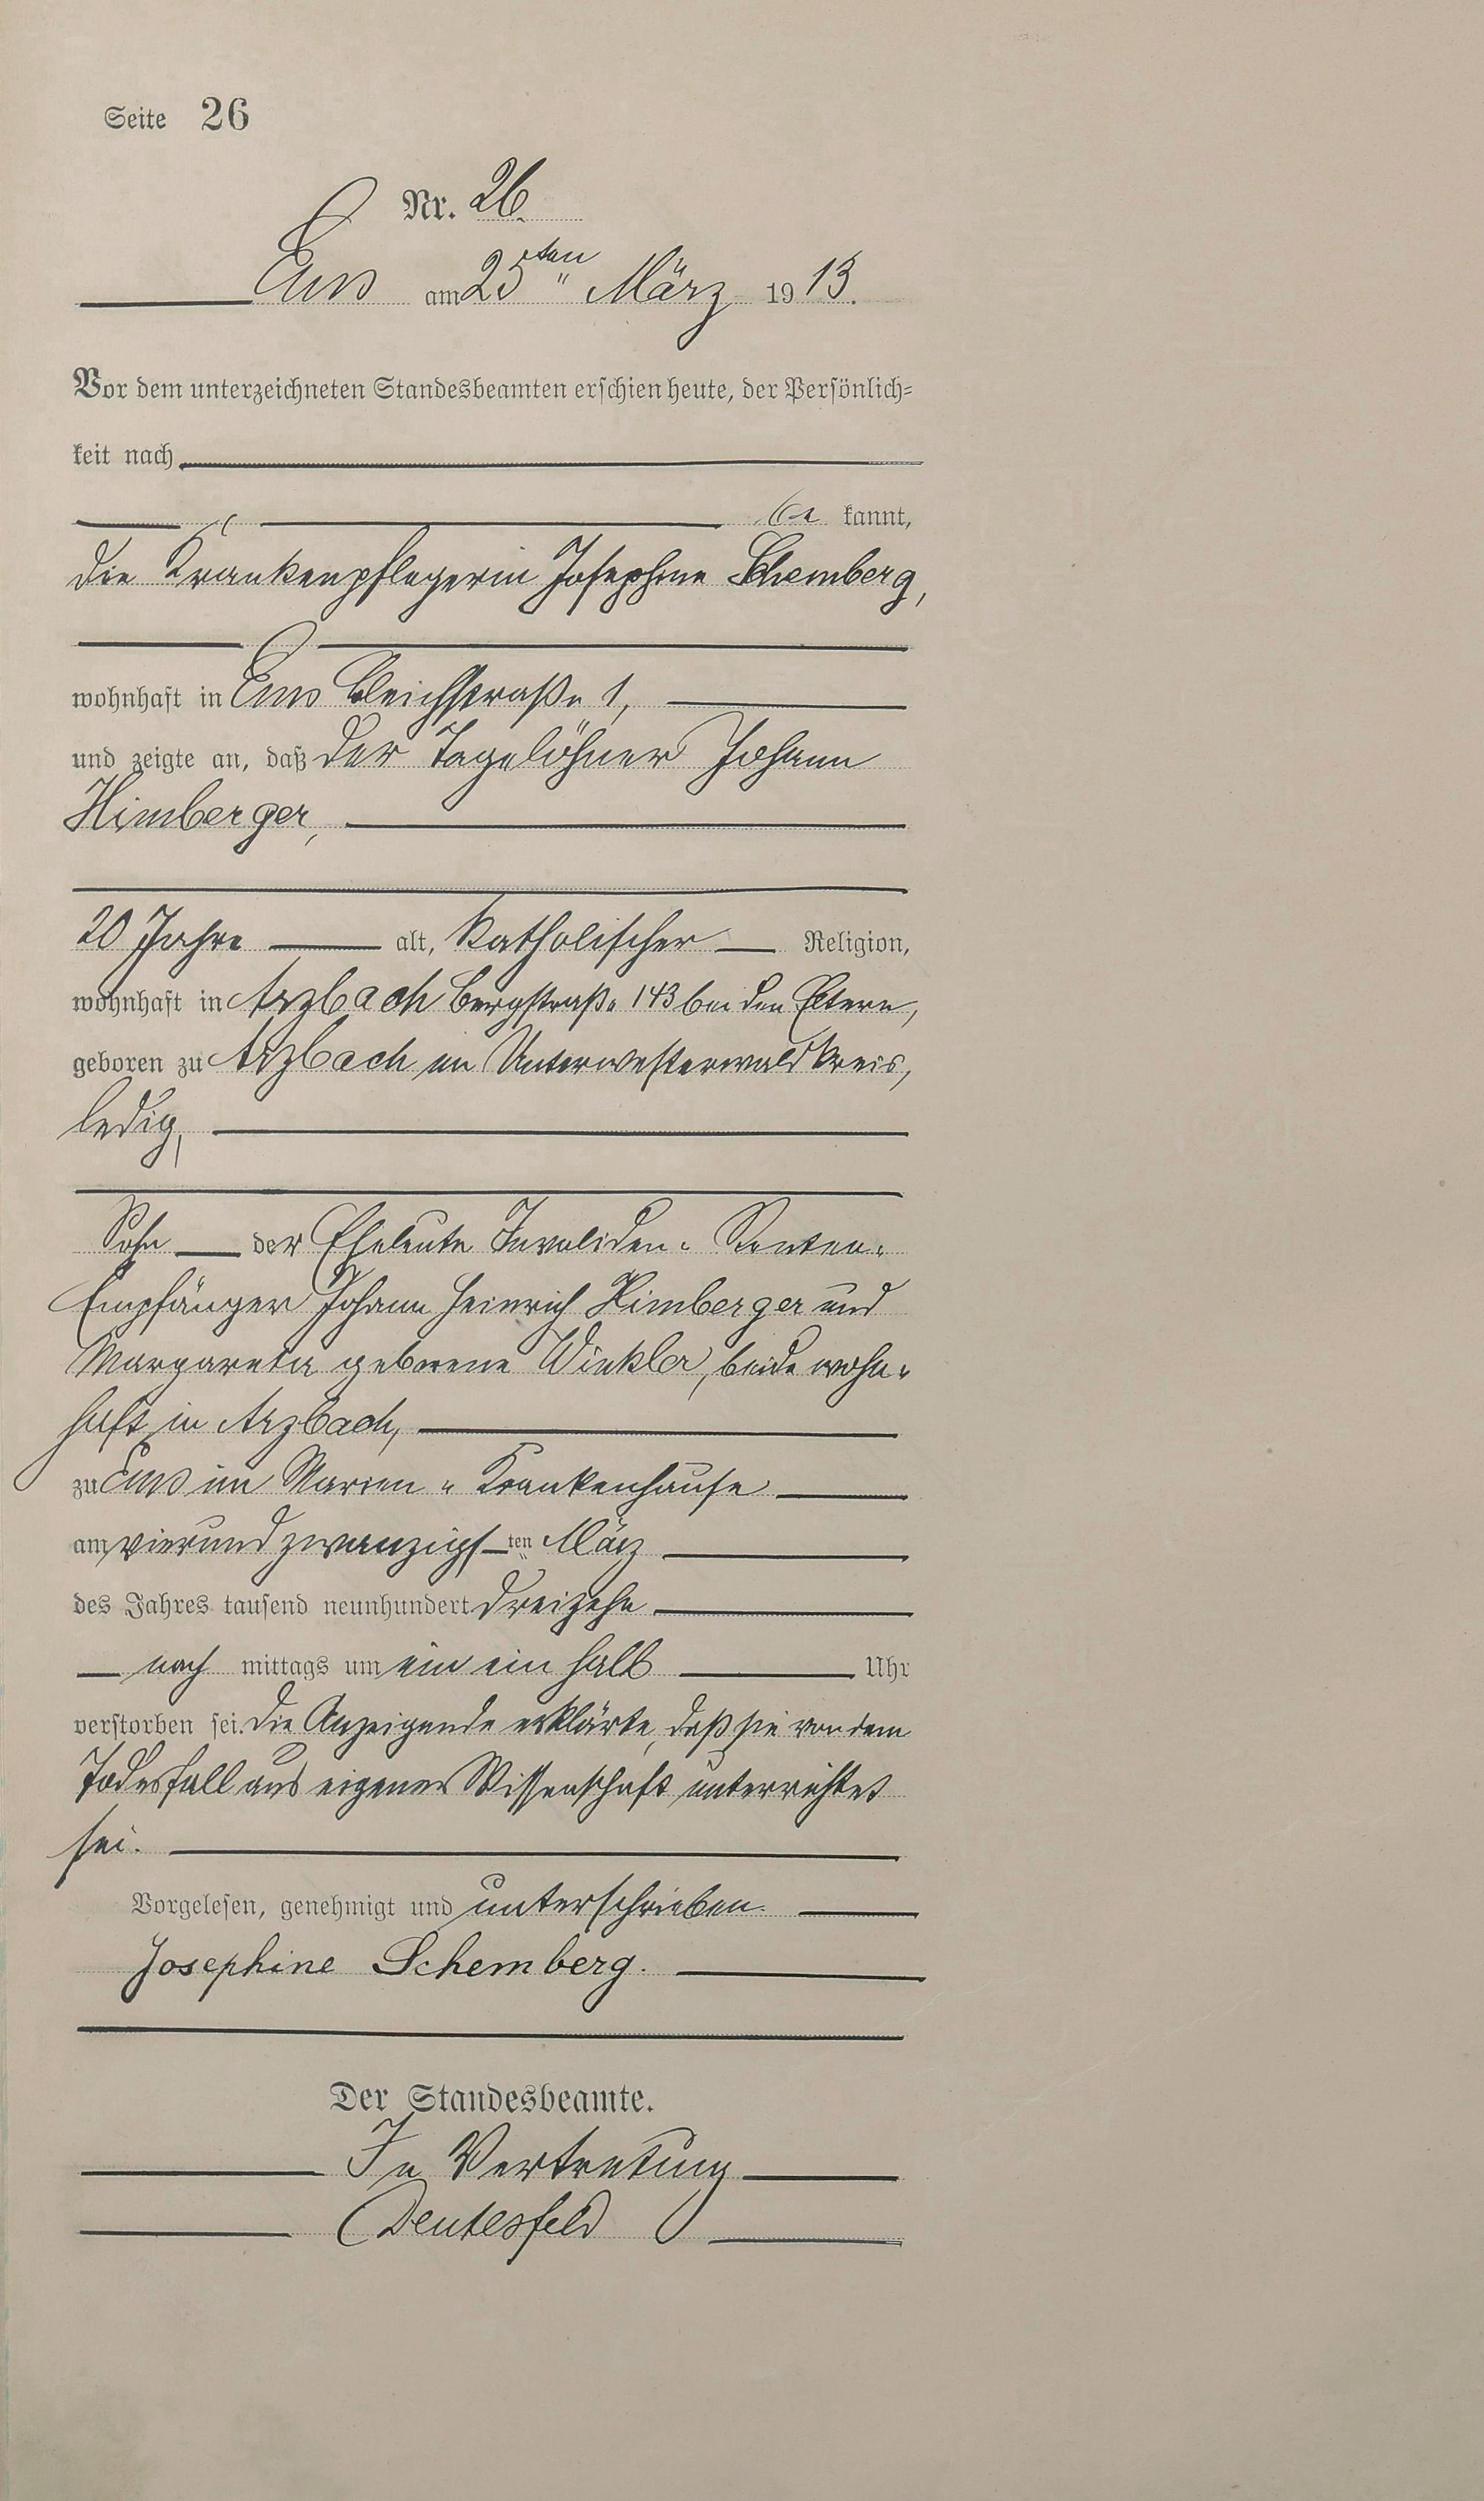 Seite 26
Nr. 26.
Ems am 25ten März 1913.
Vor dem unterzeichneten Standesbeamten erschien heute, der Persönlich=
keit nach
be kannt,
die Krankenpflegerin Josephine Schemberg,
wohnhaft in Ems Bleichstraße 1,
und zeigte an, daß der Tagelöhner Johann
Himberger,
20 Jahre alt, katholischer Religion,
wohnhaft in Arzbach Bergstraße 143 bei den Eltern,
geboren zu Arzbach im Unterwesterwaldkreis,
ledig,
Sohn der Eheleute Invaliden- Renten-
Empfänger Johann Heinrich Himberger und
Margareta geborene Winkler, beide wohn-
haft in Arzbach,
zu Ems im Marien - Krankenhause
am vierundzwanzigsten März
des Jahres tausend neunhundert dreizehn
nach mittags um ein ein halb Uhr
verstorben sei. Die Anzeigende erklärte, daß sie von dem
Todesfall aus eigener Wissenschaft unterrichtet
sei.
Vorgelesen, genehmigt und unterschrieben.
Josephine Schemberg.
Der Standesbeamte.
In Vertretung
Deutesfeld